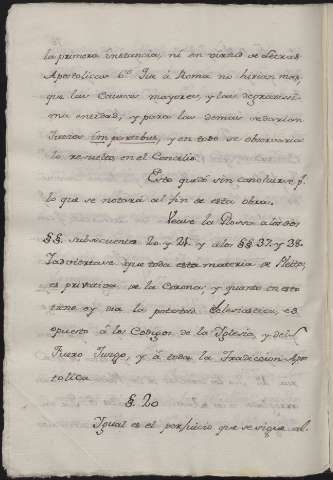 la primera instancia, ni en virtud de Letras
Apostolicas 6º Que á Roma no hirian mas,
que las Causas mayores, y las de gravissi-
ma entidad, y para las demas se darian
Jueces impartibus, y en todo se observaria
lo resuelto en el Concilio.
Esto quedó sin concluirse, p.
lo que se notará al fin de esta obra.
Vease la Nota alos dos
§§. subsecuentes 20 y 21. y alos §§ 37. y 38.
Y adviertase que toda esta materia de Pleitos,
es privativa de la Corona, y quanto en esto
tiene oy dia la potestad Eclesiastica, es
opuesto á los Codigos de la Yglesia, y del
Fuero Juzgo, y á toda la Tradiccion Apos
tolica
§. 20
Ygual es el perjuicio que se sigue al